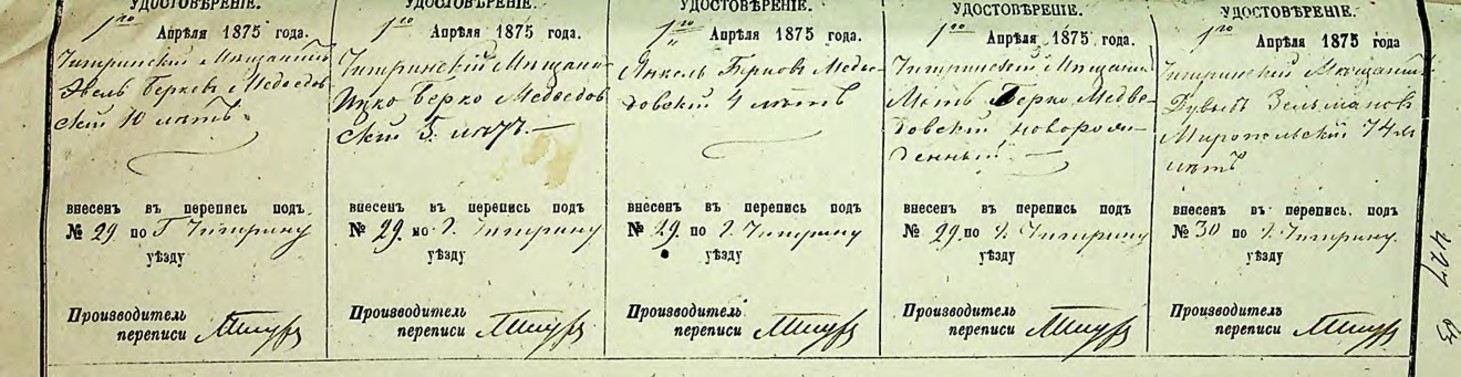 УДОСТОВѢРЕНІЕ.
1го Апрѣля 1875 года.
Чигринскій Мѣщанинъ
Эвель Берковъ Медведов
скій 10 лѣтъ
внесенъ въ перепись подъ
№ 29 по Г Чигрину
уѣзду
Производитель
переписи
УДОСТОВѢРЕНІЕ.
1го Апрѣля 1875 года.
Чигринскій Мѣщани
Ицко Берко Медведов
скій 5 лѣтъ.—
внесенъ въ перепись подъ
№ 29. по г. Чигрину
уѣзду
Производитель
переписи
УДОСТОВѢРЕНІЕ.
1го Апрѣля 1875 года.
Янкель Берков Медве
довскій 4 лѣтъ
внесенъ въ перепись подъ
№ 29. по г. Чигрину
уѣзду
Производитель
переписи
УДОСТОВѢРЕНІЕ.
1го Апрѣля 1875 года.
Чигринскій Мѣщанин
Берко Медве-
довскій новорож-
денный.—
внесенъ въ перепись подъ
№ 29. по г. Чигрину
уѣзду
Производитель
переписи
УДОСТОВѢРЕНІЕ.
1го Апрѣля 1875 года
Чигринскій Мѣщанинъ
Дувыдъ Зельманов
Миропольскій 74
лѣтъ
внесенъ въ перепись подъ
№ 30 по г. Чигрину.
уѣзду
Производитель
переписи
427